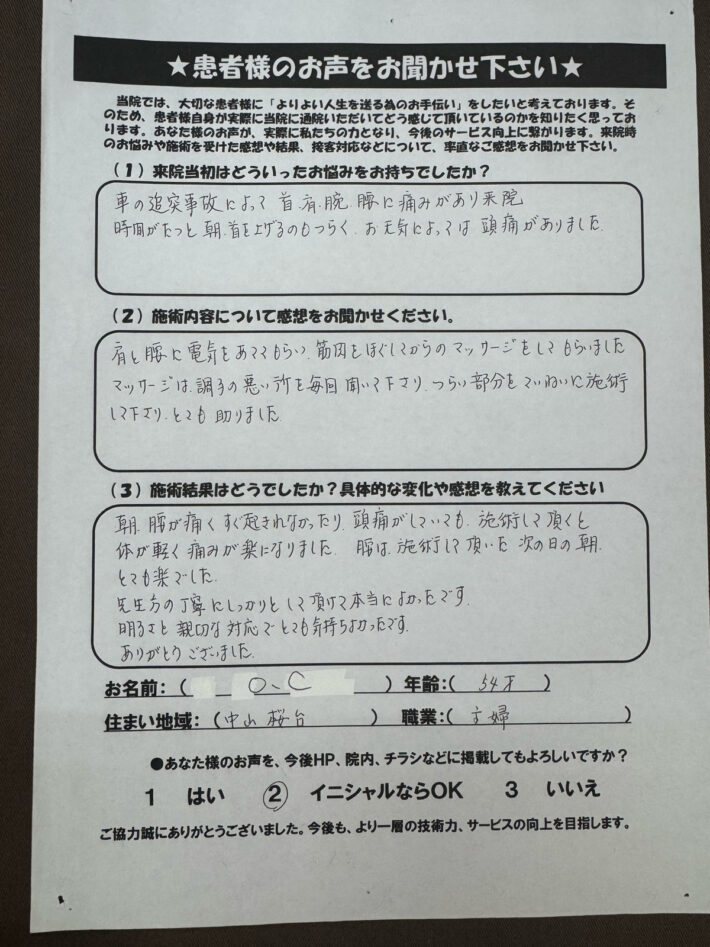 ★患者様のお声をお聞かせ下さい★
当院では、大切な患者様に「よりよい人生を送る為のお手伝い」をしたいと考えております。そ
のため、患者様自身が実際に当院に通院いただいてどう感じて頂いているのかを知りたく思ってお
ります。あなた様のお声が、実際に私たちの力となり、今後のサービス向上に繋がります。来院時
のお悩みや施術を受けた感想や結果、接客対応などについて、率直なご感想をお聞かせ下さい。
(1)来院当初はどういったお悩みをお持ちでしたか?
車の追突事故によって 首.肩.腕.腰に痛みがあり来院
時間がたつと朝.首を上げるのもつらく.お天気によっては 頭痛がありました.
(2)施術内容について感想をお聞かせください。
肩と腰に電気をあててもらい.筋肉をほぐしてからのマッサージをしてもらいました
マッサージは.調子の悪い所を毎回聞いて下さり.つらい部分をていねいに施術
して下さり.とても助りました.
(3)施術結果はどうでしたか?具体的な変化や感想を教えてください
朝.腰が痛くすぐ起きれなかったり.頭痛がしていても.施術して頂くと
体が軽く痛みが楽になりました. 腰は.施術して頂いた次の日の朝.
とても楽でした.
先生方の丁寧にしっかりとして頂けて本当によかったです.
明るさと親切な対応でとても気持ちよかったです.
ありがとうございました.
お名前:( O.C )年齢:( 54才 )
住まい地域:(中山桜台 ) 職業:( 主婦 )
●あなた様のお声を、今後HP、院内、チラシなどに掲載してもよろしいですか?
1 はい ② イニシャルならOK 3 いいえ
ご協力誠にありがとうございました。今後も、より一層の技術力、サービスの向上を目指します。